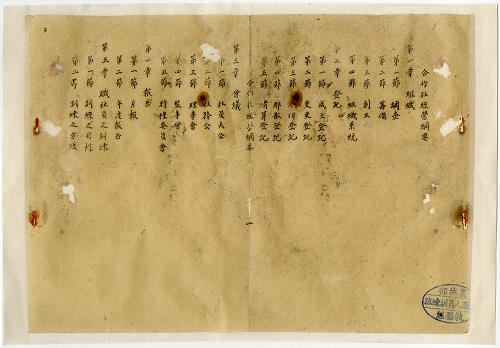 合作社經營綱要
第一章 組織
第一節 調查
第二節 籌備
第三節 創立
第四節 組織系統
第二章 登記
第一節 成立登記
第二節 變更登記
第三節 登記
第四節 解散登記
第五節 清算登記
合作社經營綱要
第三章 會議
第一節 社員大會
第二節 社務會
第三節 理事會
第四節 監事會
第五節 特種委員會
第四章 報告
第一節 月報
第二節 年度報告
第五章 職社員之訓練
第一節 訓練之目標
第二節 訓練之方法
一